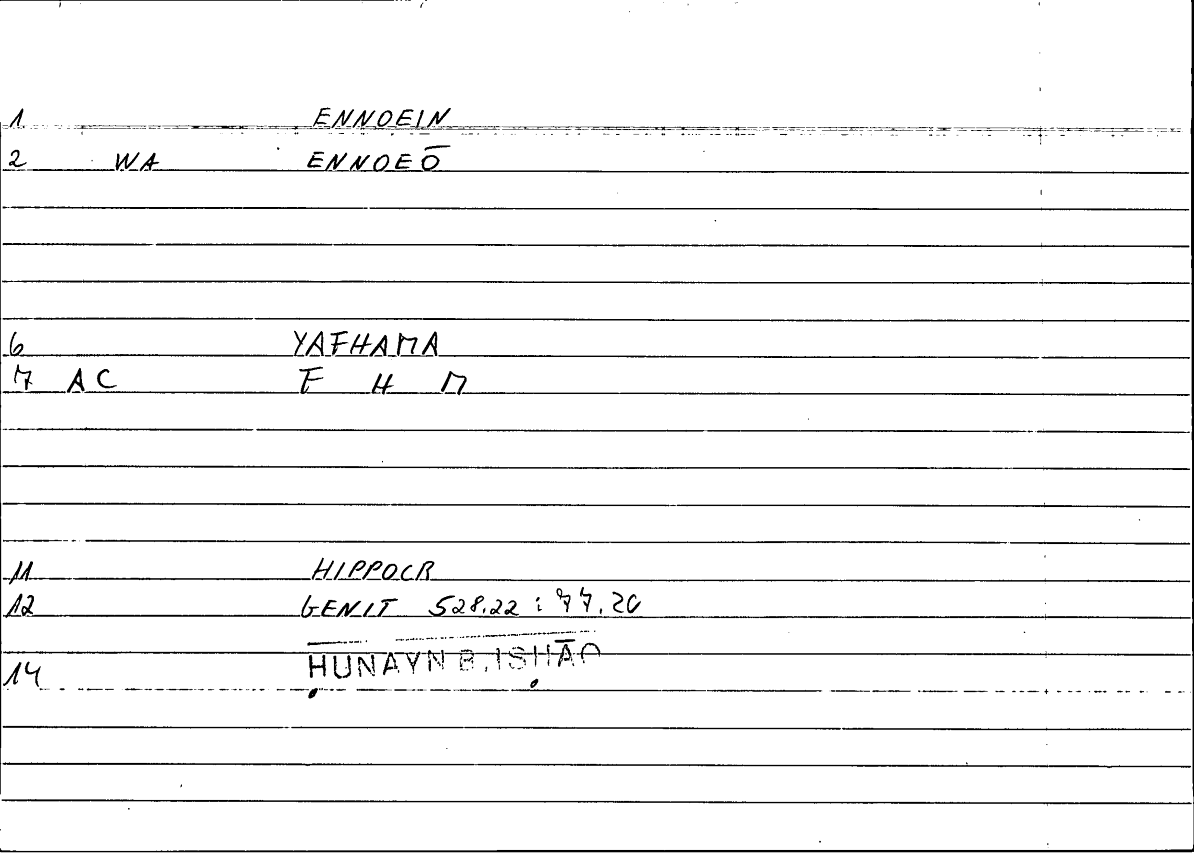 1 ENNOEIN
2 WA ENNOEŌ
6 YAFHAMA
7 AC F H M
11 HIPPOCR
12 GENIT 528.22 : 77.20
14 ḤUNAYN B. ISḤĀQ